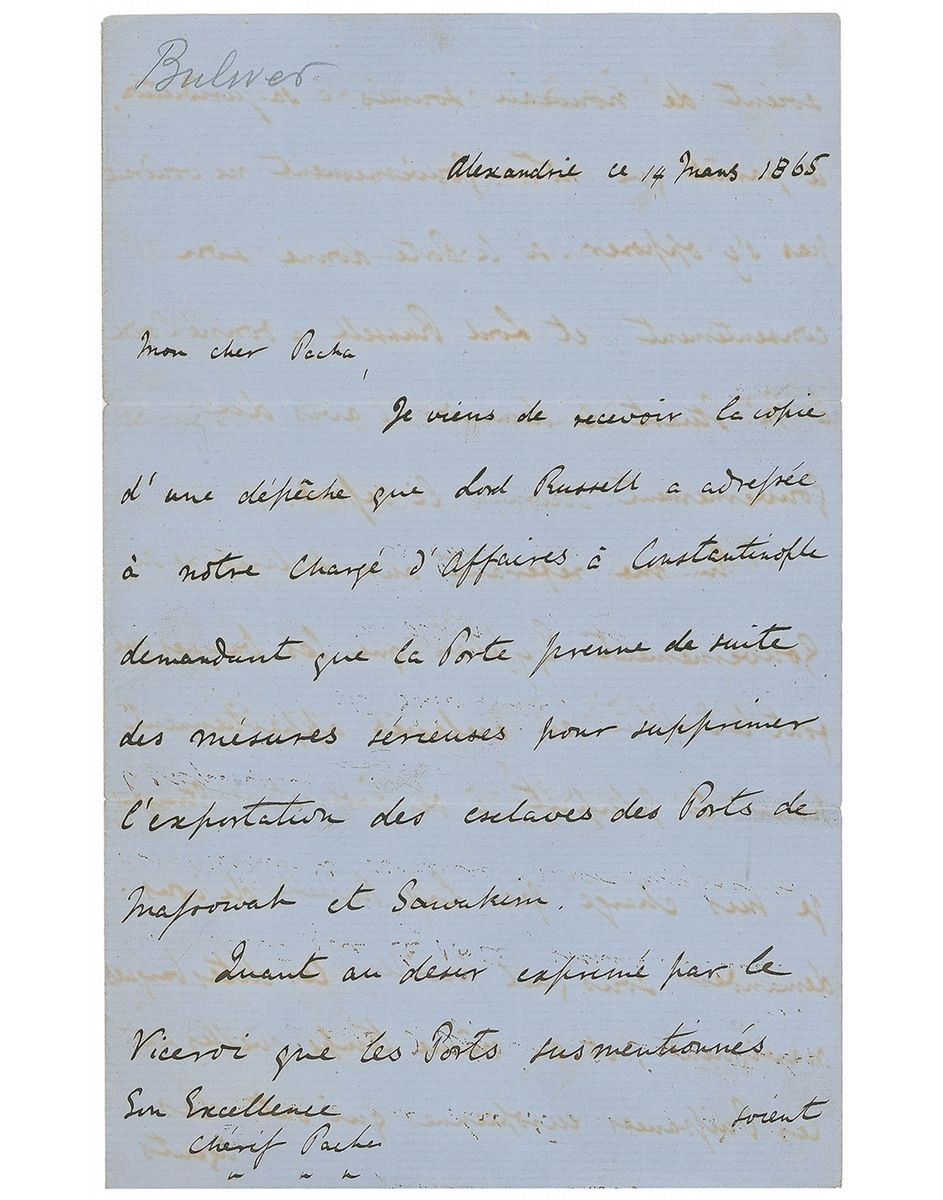 Bulwer
Alexandrie ce 14 Mars 1865
Mon cher Pacha,
Je viens de recevoir la copie
d'une dépêche que Lord Russell a adressée
à notre Chargé d'Affaires à Constantinople
demandant que la Porte prenne de suite
des mésures sérieuses pour supprimer
l'exportation des esclaves des Ports de
Massowah et Sawakim.
Quant au désir exprimé par le
Viceroi que les Ports susmentionnés
Son Excellence
soient
Chérif Pacha
" " "